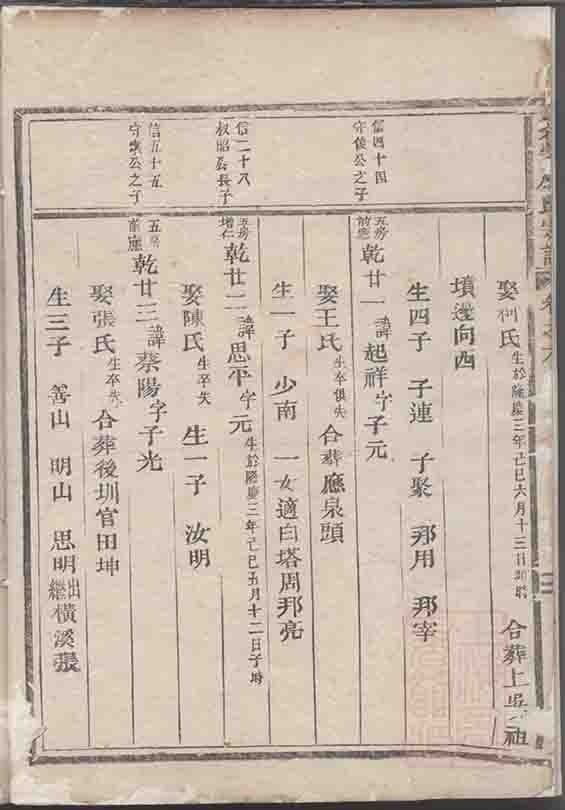 娶何氏生於隆慶三年己巳六月十三日 合葬上吳 祖
墳邊向西
生四子 子連 子聚 邦用 邦宰
信四十四
守俊公之子
五房前應乾廿一諱起祥字子元
娶王氏生卒俱失合葬應泉頭
生一子 少南 一女適白塔周邦亮
信二十八
叔昭公長子
五房增仁乾廿二諱思平字元生於隆慶三年己巳五月十二日子時
娶陳氏生卒失 生一子 汝明
信五十五
守 公之子
五房前應乾廿三諱蔡陽字子光
娶張氏生卒失合葬後圳官田坤
生三子 善山 明山 思明出繼橫溪張